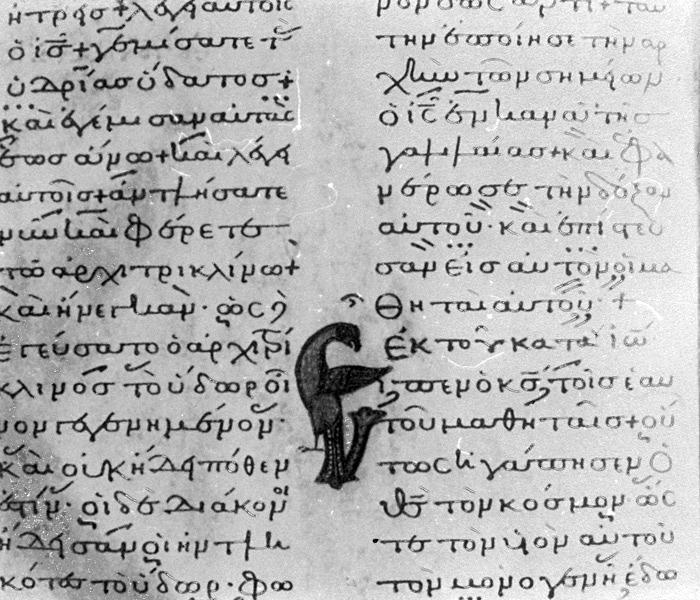 ἢ τρεῖς + λέγει αὐτοῖς
ὁ ις̅ + γεμίσατε τὰς
ὑδρίας ὕδατος +
καὶ ἐγέμισαν αὐτὰς
ἕως ἄνω + καὶ λέγει
αὐτοῖς + ἀντλήσατε
νῦν καὶ φέρετε
τῶ ἀρχιτρικλίνω +
καὶ ἤνεγκαν · ὡς δὲ
ἐγεύσατο ὁ ἀρχιτρι
κλινος τὸ ὕδωρ οἶ
νον γεγενημένον ·
καὶ οὐκ ἤδει πόθεν
ἐστίν · οἱ δὲ διάκονοι
ἤδεισαν οἱ ἠντλη
κότες τὸ ὕδωρ · φω
ἕως ἄρτι + ταύ
την ἐποίησε τὴν ἀρ
χὴν τῶν σημείων
ὁ ις̅ ἐν κανᾶ τῆς
γαλιλαίας + καὶ ἐφα
νέρωσε τὴν δόξαν
αὐτοῦ · καὶ ἐπίστευ
σαν εἰς αὐτὸν οἱ μα
θηταὶ αὐτοῦ · +
Ἐκ τοῦ κατὰ ἰω̅
Εἶπεν ὁ κς̅ τοῖς ἑαυ
τοῦ μαθηταῖς + οὕ
τως ἠγάπησεν ὁ
θς̅ τὸν κόσμον ὥς
τε τὸν υἱὸν αὐτοῦ
τὸν μονογενῆ ἔδω